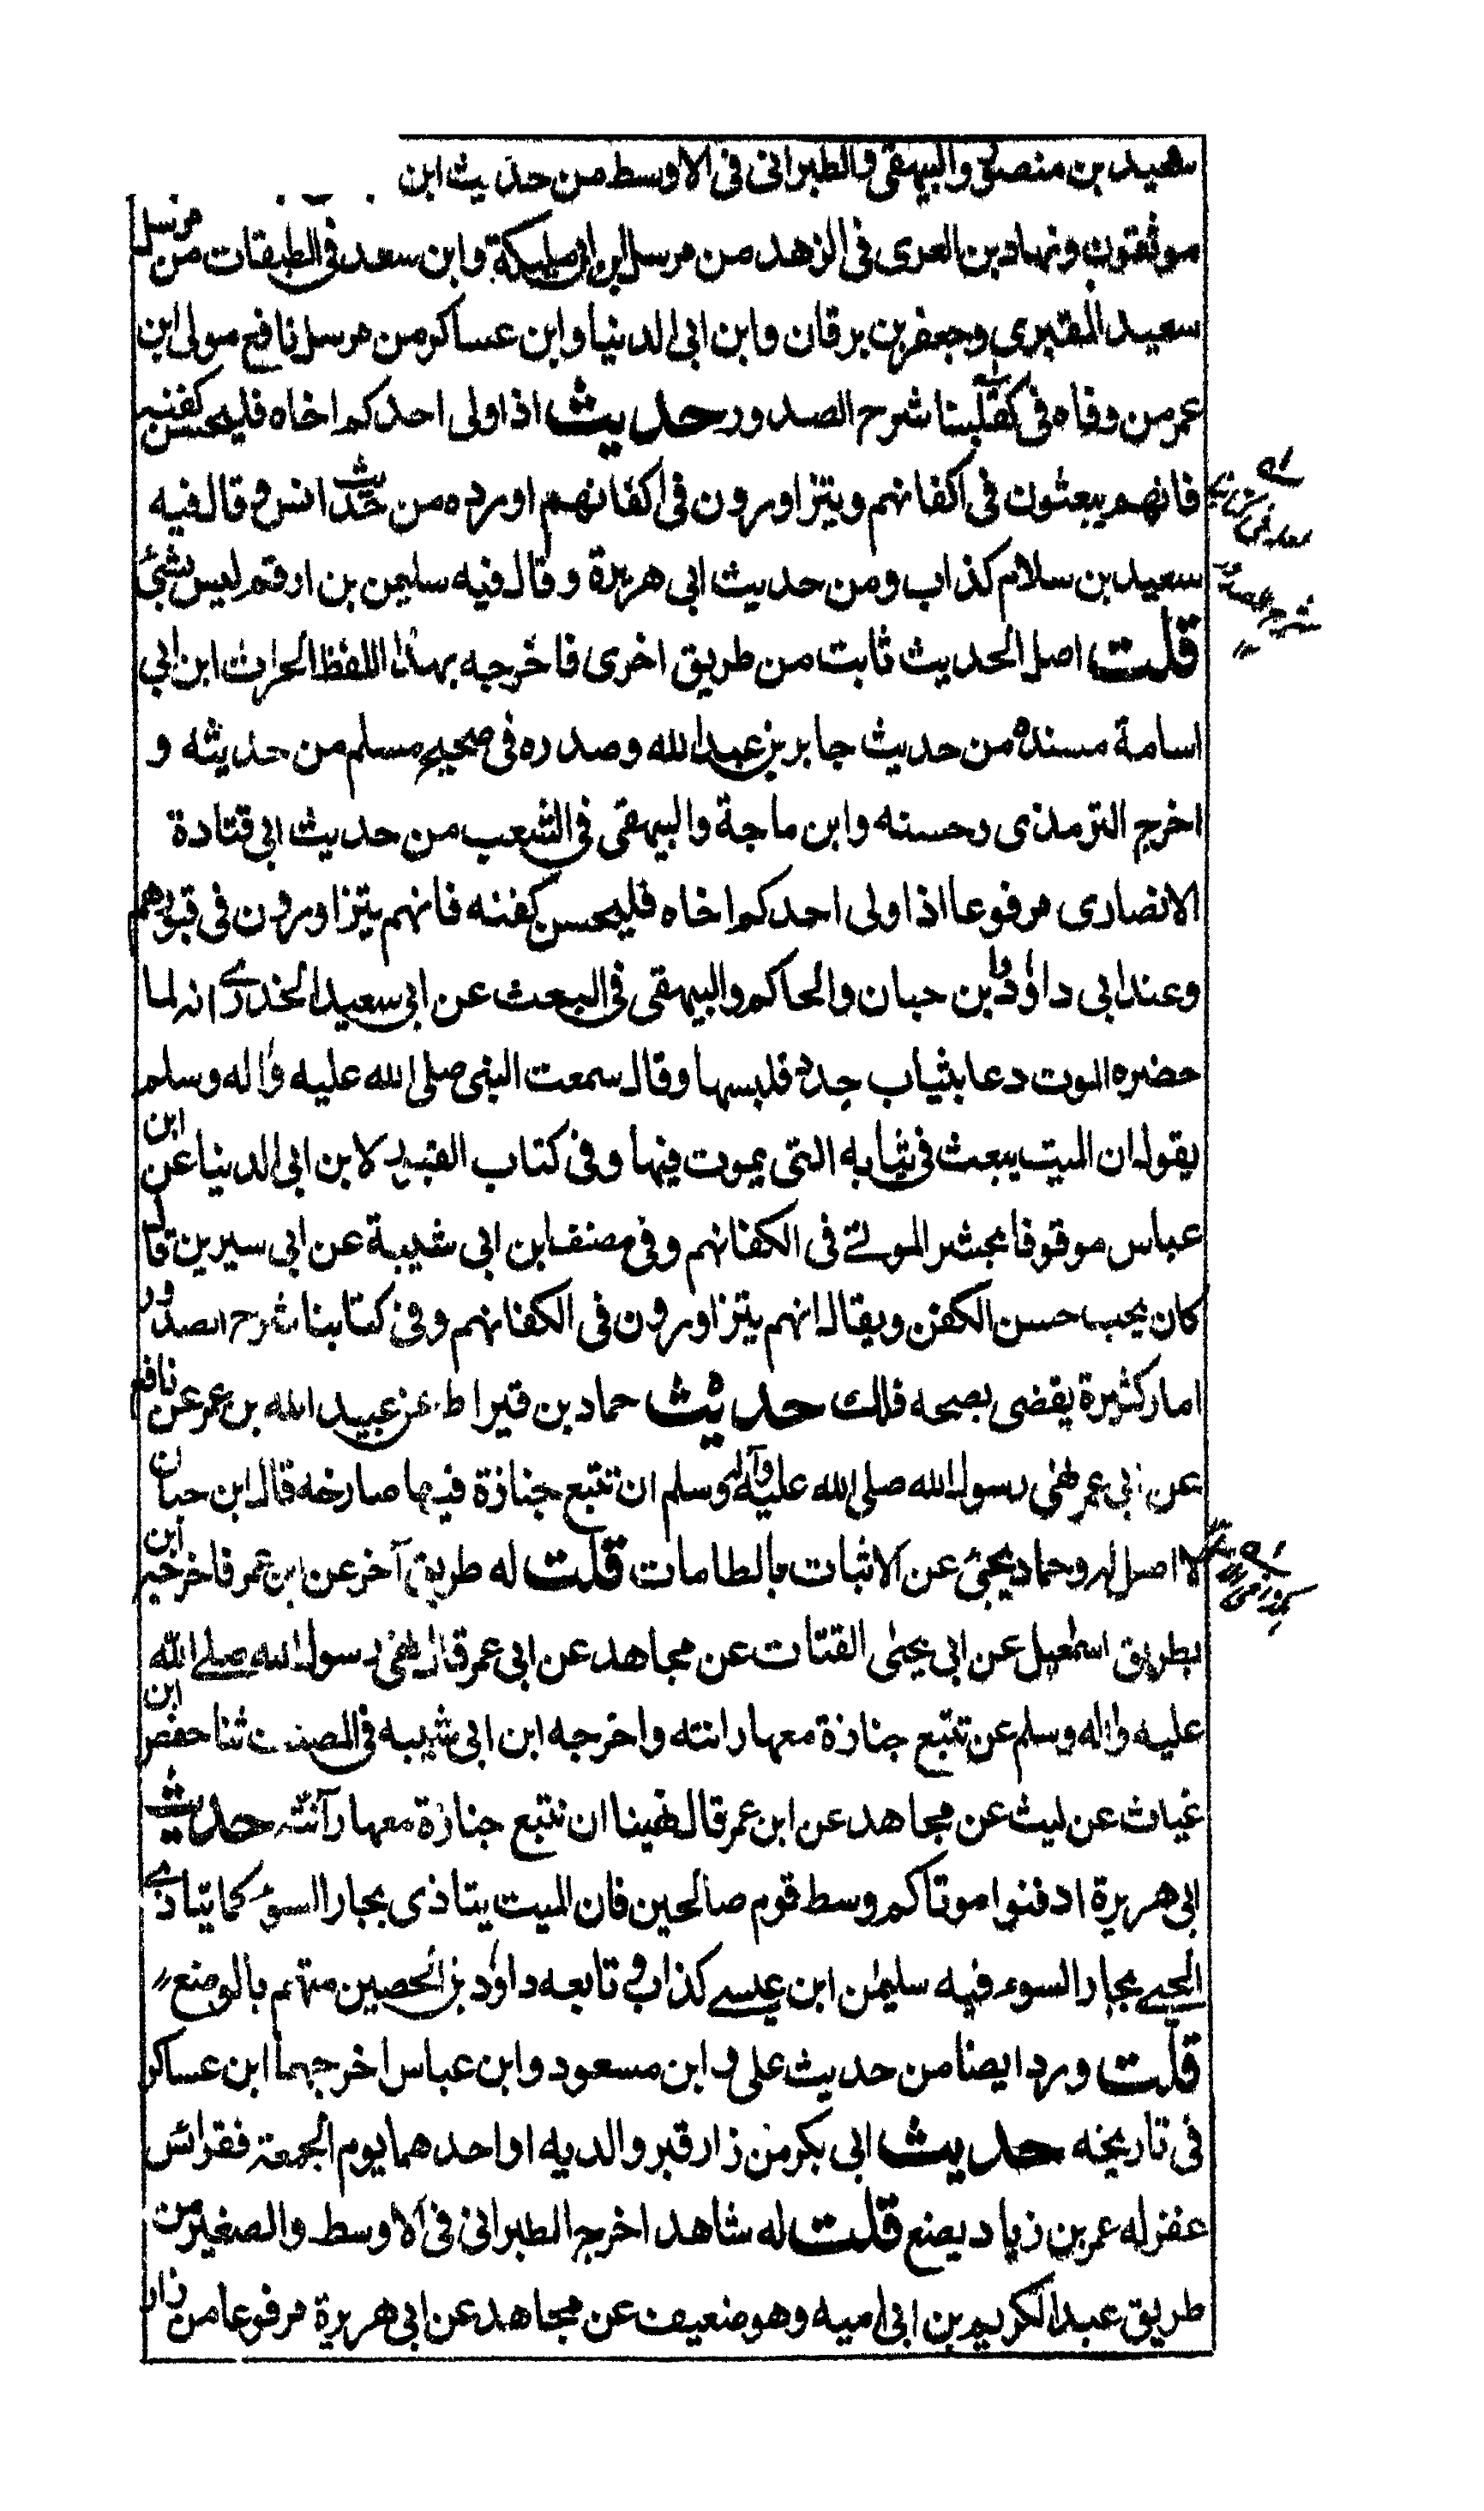 سعيد بن منصور والبيهقى والطبرانى فى الاوسط من حديث ابن
موثقون ونهاد بن العرى فى الزهد من مرسل ابن ابى مليكة وابن سعد فى الطبقات من مرسل
سعيد المقبرى وجعفر بن برقان وابن ابى الدنيا وابن عساكر من مرسل نافع مولى ابن
عمر من وفاه فى كتابنا شرح الصدور حديث اذا ولى احدكم اخاه فليحسن كفنه
فانهم يبعثون فى اكفانهم ويتزاورون فى اكفانهم اورده من حديث انس وقال فيه
سعيد بن سلام كذاب ومن حديث ابى هريرة وقال فيه سليمن بن ارقم ليس بشئ
قلت اصل الحديث ثابت من طريق اخرى فاخرجه بهذا اللفظ الحارث ابن ابى
اسامة مسنده من حديث جابر بن عبد الله وصدره فى صحيح مسلم من حديثه و
اخرج الترمذى وحسنه وابن ماجة والبيهقى فى الشعب من حديث ابى قتادة
الانصارى مرفوعا اذا ولى احدكم اخاه فليحسن كفنه فانهم يتزاورون فى قبورهم
وعند ابى داؤد وابن حبان والحاكم والبيهقى فى البعث عن ابى سعيد الخدرى انه لما
حضره الموت دعا بثياب جدد فلبسها وقال سمعت النبى صلى الله عليه واله وسلم
يقول ان الميت يبعث فى ثيابه التى يموت فيها وفى كتاب القبور لابن ابى الدنيا عن ابن
عباس موقوفا يحشر الموتى فى الكفانهم وفى مصنف ابن ابى شيبة عن ابى سيرين قال
كان يحب حسن الكفن ويقال انهم يتزاورون فى الكفانهم وفى كتابنا شرح الصدور
اماركثيرة يقضى بصحه فلك حديث حماد بن قيراط عن عبيد الله بن عمر عن نافع
عن ابى عمر نهى رسول الله صلى الله عليه واله وسلم ان تتبع جنازة فيها صارخه قال ابن حبان
لا اصل له وحماد يجئ عن الاثبات بالطامات قلت له طريق آخر عن ابن عمر فاخرجه ابن
بطريق اسمعيل عن ابى يحيى القتات عن مجاهد عن ابى عمر قال نهى رسول الله صلى الله
عليه واله وسلم عن تتبع جنازة معها رانته واخرجه ابن ابى شيبه فى المصنف ثنا حفص ابن
غياث عن ليث عن مجاهد عن ابن عمر قال نهينا ان نتبع جنازة معها رآنته حديث
ابى هريرة ادفنوا موتاكم وسط قوم صالحين فان الميت يتاذى بجار السوء كما يتاذى
الحى بجار السوء فيه سليمن ابن عيسى كذاب و تابعه داؤد بن الحصين متهم بالوضع
قلت ورد ايضا من حديث على و ابن مسعود وابن عباس اخرجهما ابن عساكر
فى تاريخه حديث ابى بكر من زار قبر والديه او احدهما يوم الجمعة فقرا يس
غفر له عمر بن زياد يضع قلت له شاهد اخرجه الطبرانى فى الاوسط والصغير من
طريق عبد الكريم بن ابى اميه وهو ضعيف عن مجاهد عن ابى هريرة مرفوعا من زار